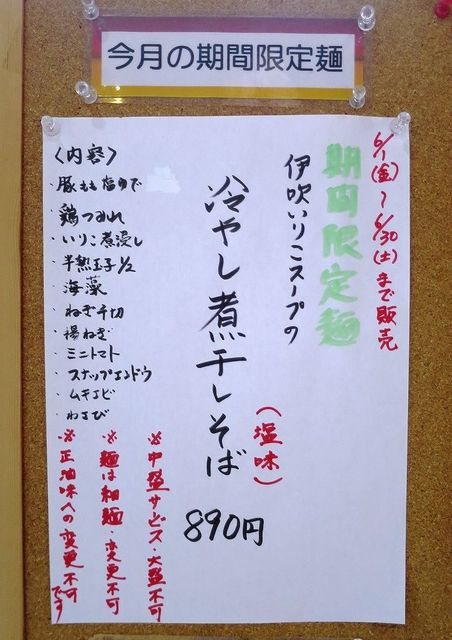 今月の期間限定麺
6/1(金)～6/30(土)まで販売
期間限定麺
伊吹いりこスープの
冷やし煮干しそば
(塩味)
890円
〈内容〉
・豚もも塩ゆで
・鶏つみれ
・いりこ煮浸し
・半熟玉子1/2
・海藻
・ねぎ千切
・揚ねぎ
・ミニトマト
・スナップエンドウ
・ムキエビ
・わさび
・※中盛サービス・大盛不可
・※麺は細麺・変更不可
・※正油味への変更不可です